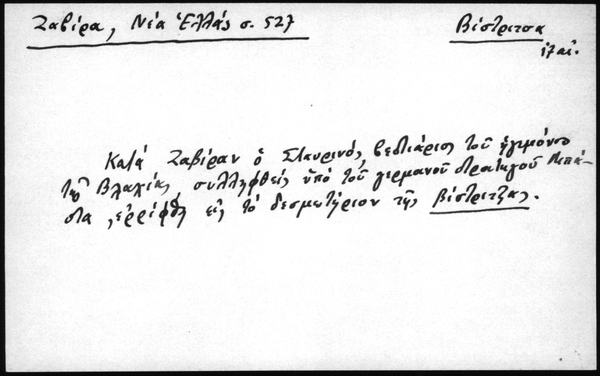 Ζαβίρα, Νέα Ἑλλάς σ. 527
Βίστριτσα
ιζ' αἰ.
Κατά Ζαβίραν ὁ Σταυρινός, βεστιάριος τοῦ ἡγεμόνος
τῆς Βλαχίας, συλληφθείς ὑπό τοῦ γερμανοῦ στρατηγοῦ Μπά-
στα, ἐρρίφθη εἰς τό δεσμωτήριον τῆς Βίστριτζας.